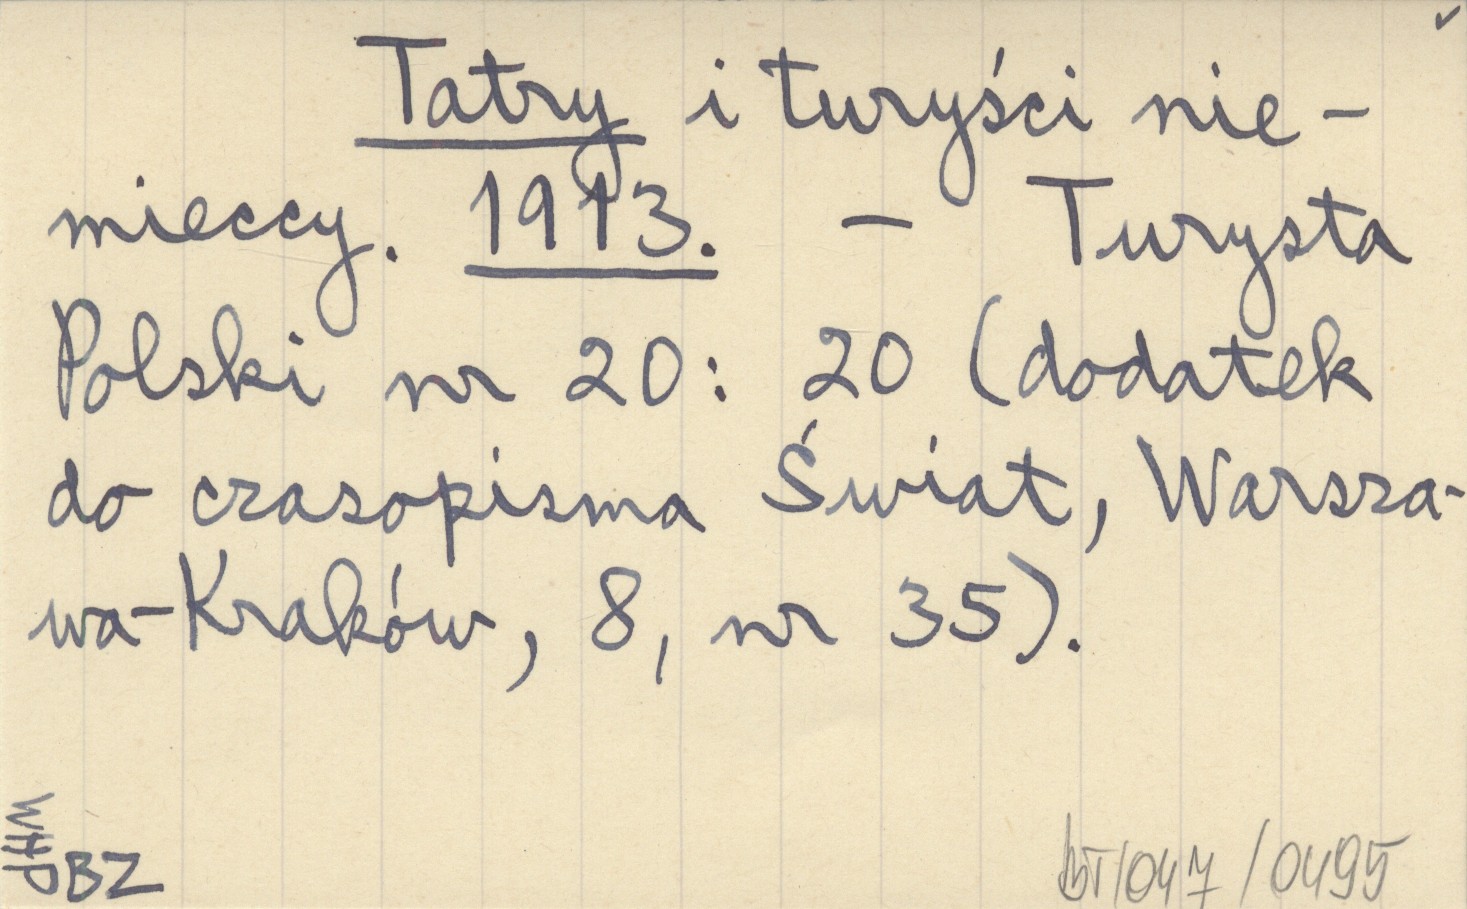 Tatry i turyści nie-
mieccy. 1913. — Turysta
Polski nr 20: 20 (dodatek
do czasopisma Świat, Warsza-
wa-Kraków, 8, nr 35).
WHP
BZ
BT/047/0495